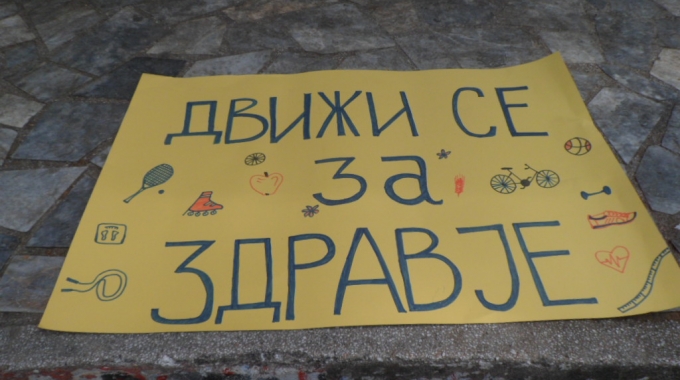 ДВИЖИ СЕ
за
ЗДРАВЈЕ